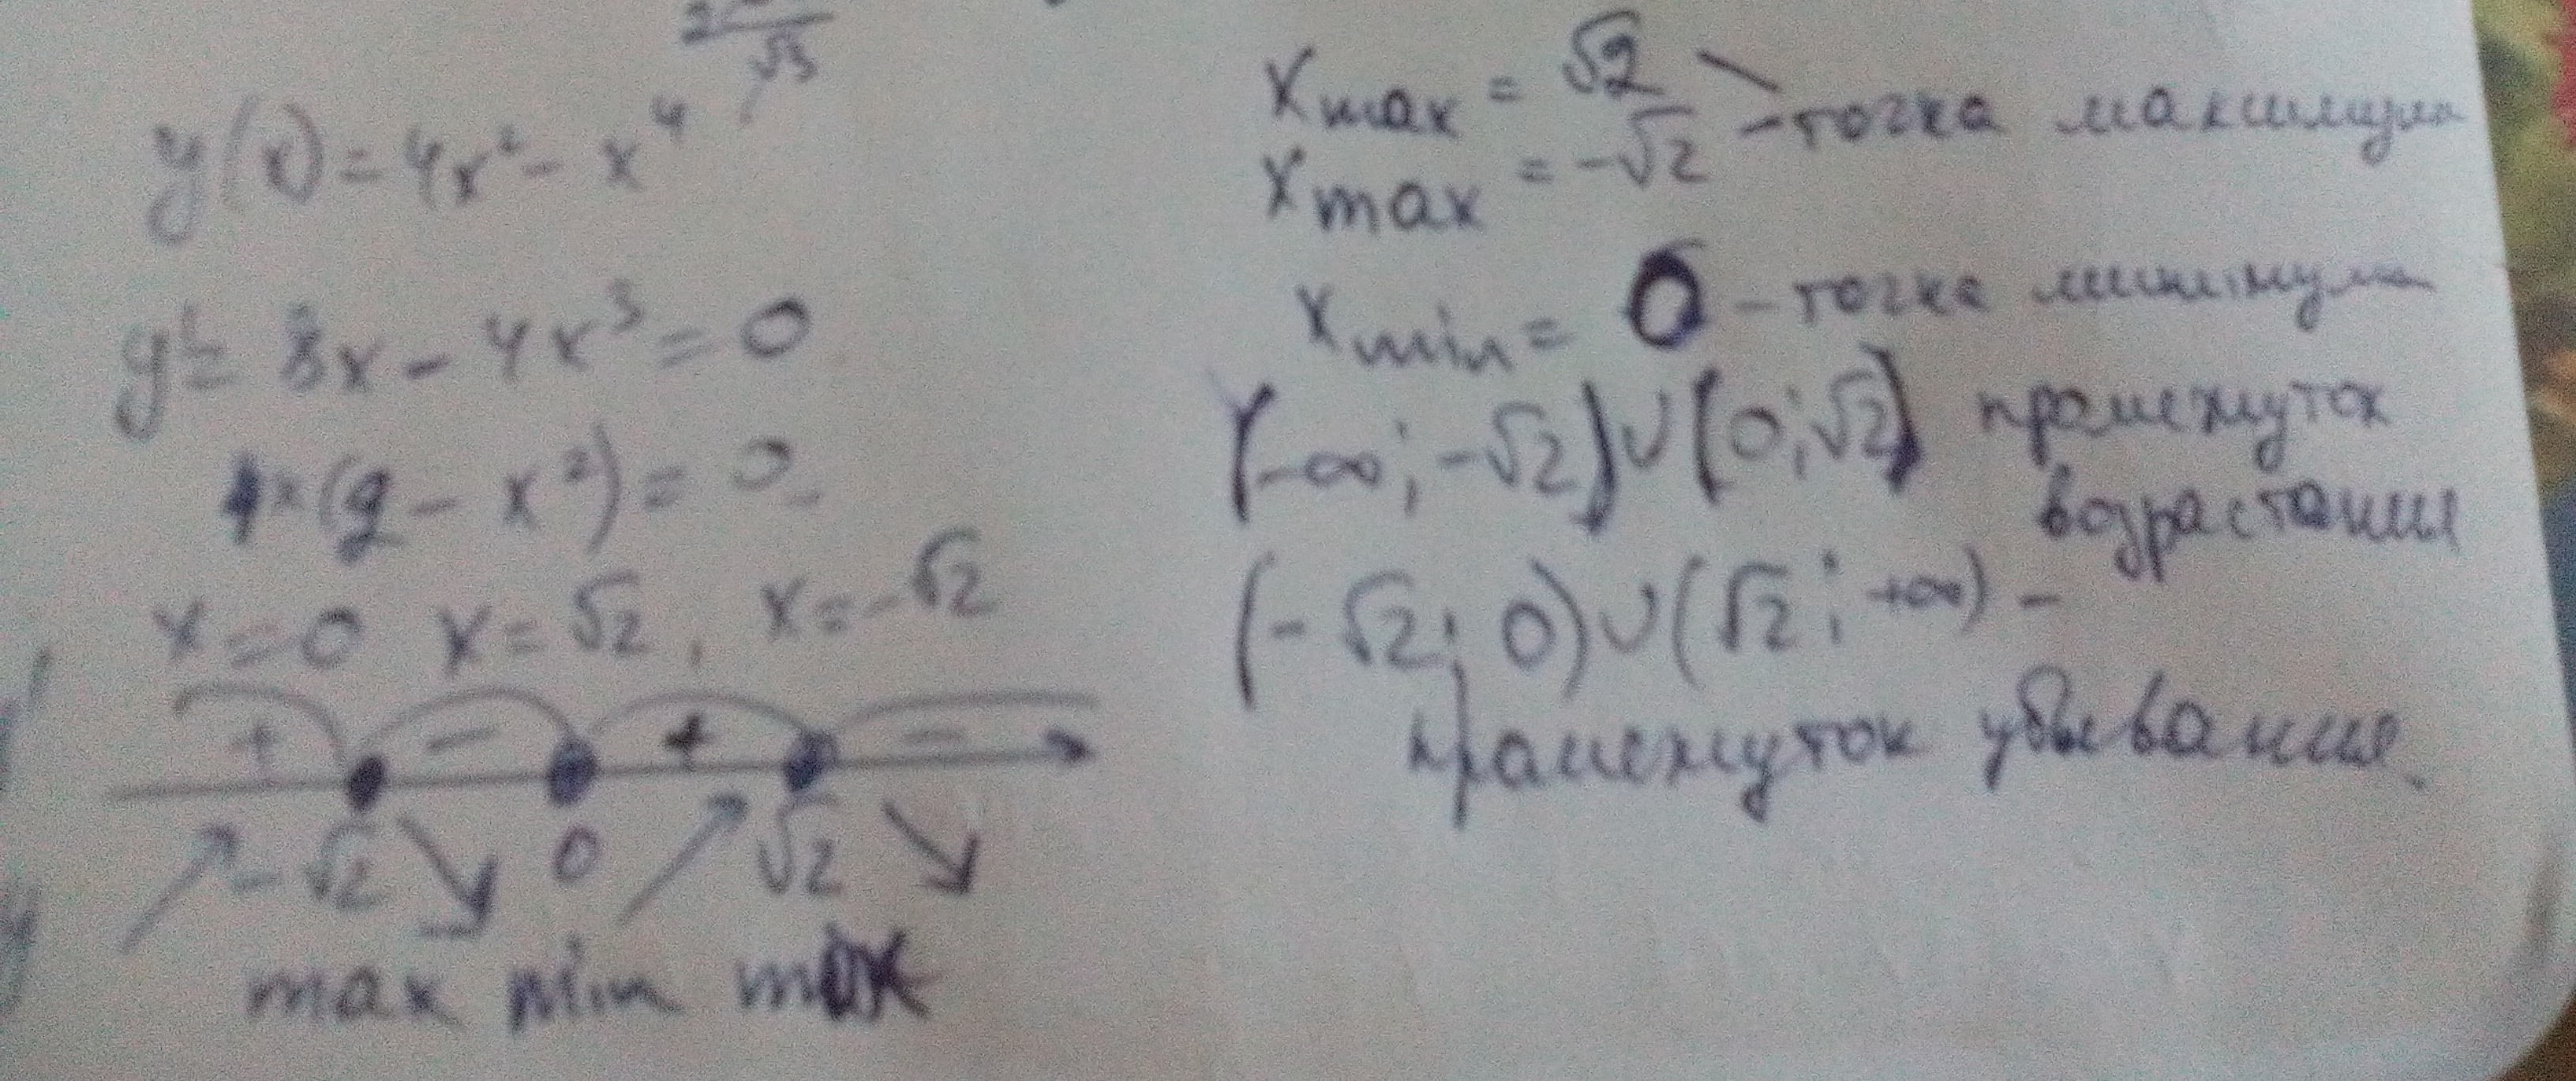 √3
y(x) = 4x² - x⁴
y' = 8x - 4x³ = 0
4x(2 - x²) = 0
x = 0 x = √2, x = -√2
+ - + -
-√2 0 √2
max min max
x max = √2
x max = -√2 - точка максимума
x min = 0 - точка минимума
(-∞; -√2) ∪ (0; √2) промежуток
возрастания
(-√2; 0) ∪ (√2; +∞) -
промежуток убывания.